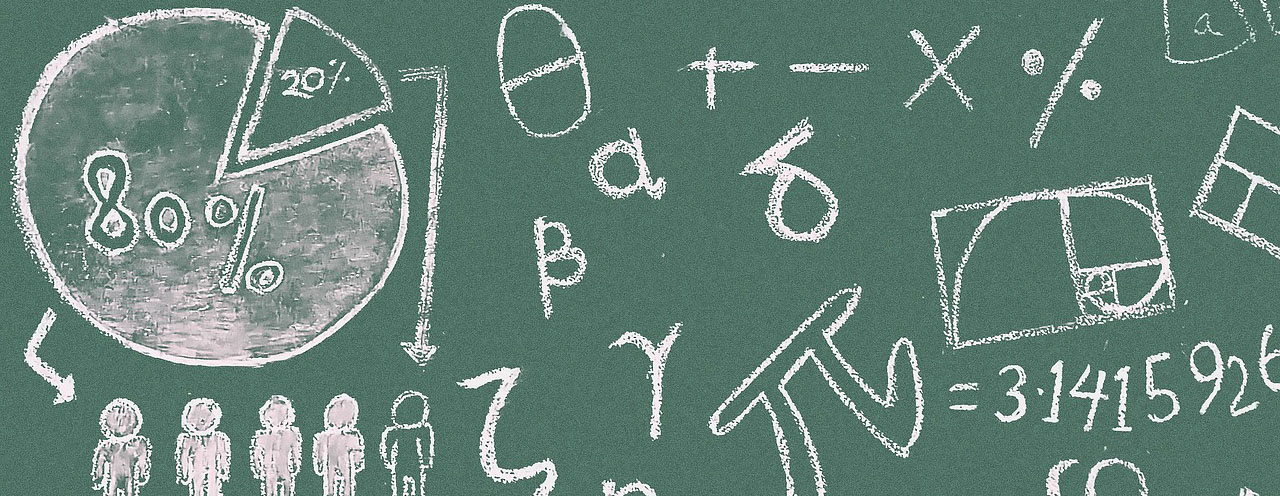 20%
80%
θ + − × %
a
α δ
β
γ
π = 3.1415926
ζ